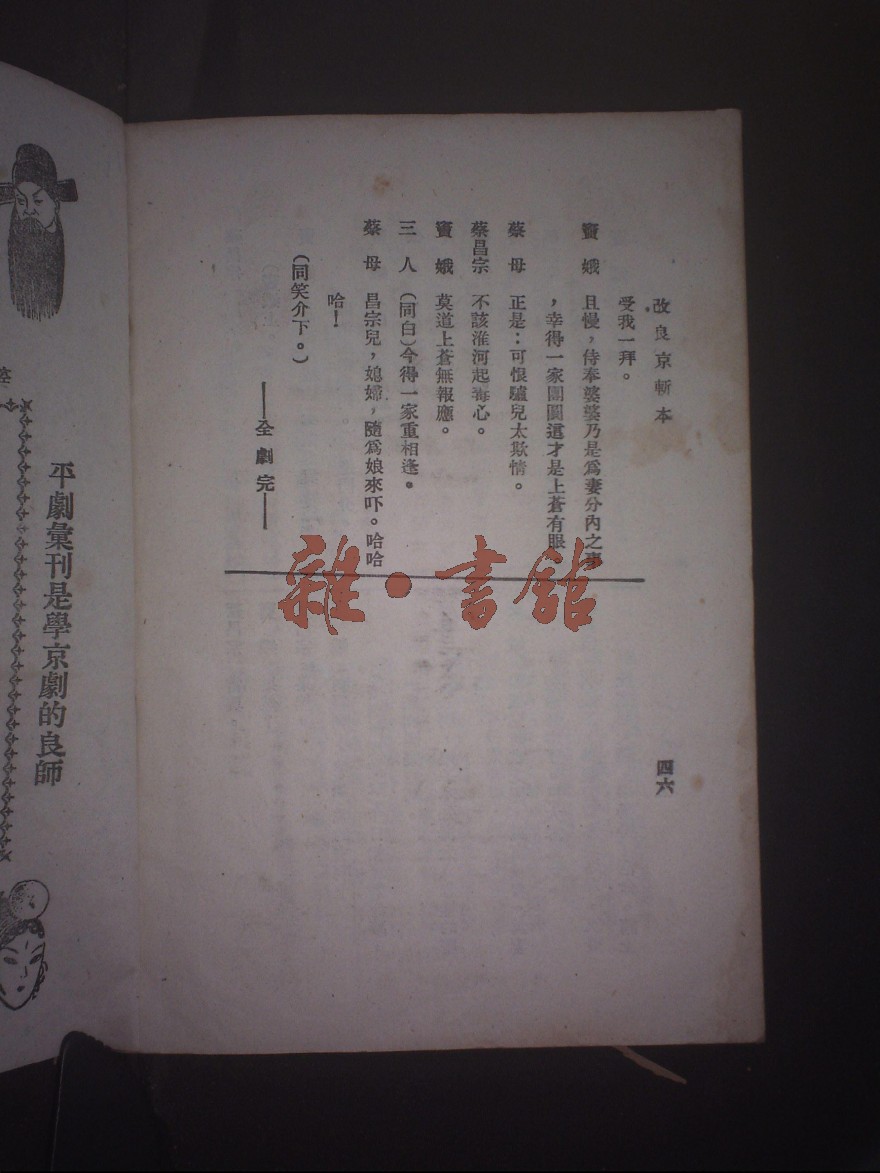 改良京斬本
受我一拜。
竇娥 且慢，侍奉婆婆乃是爲妻分內之事
，幸得一家團圓這才是上蒼有眼
蔡母 正是：可恨驢兒太欺情。
蔡昌宗 不該淮河起毒心。
竇娥 莫道上蒼無報應。
三人 (同白)今得一家重相逢。
蔡母 昌宗兒，媳婦，隨爲娘來吓。哈哈
哈！
(同笑介下。)
——全劇完——
四六
雜·書館
平劇彙刊是學京劇的良師